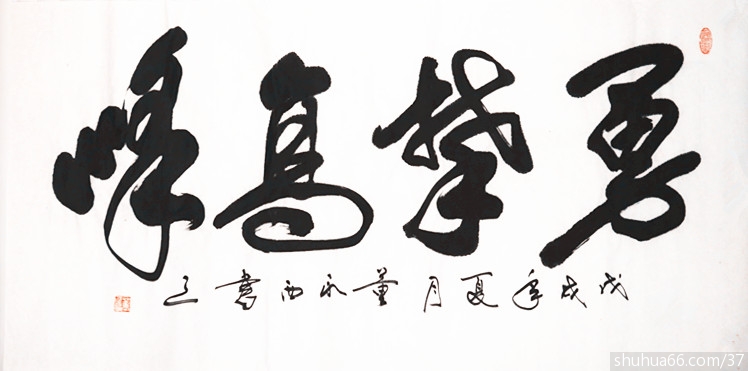 勇攀高峰
戊戌年夏月董永西書之
shuhua66.com/37